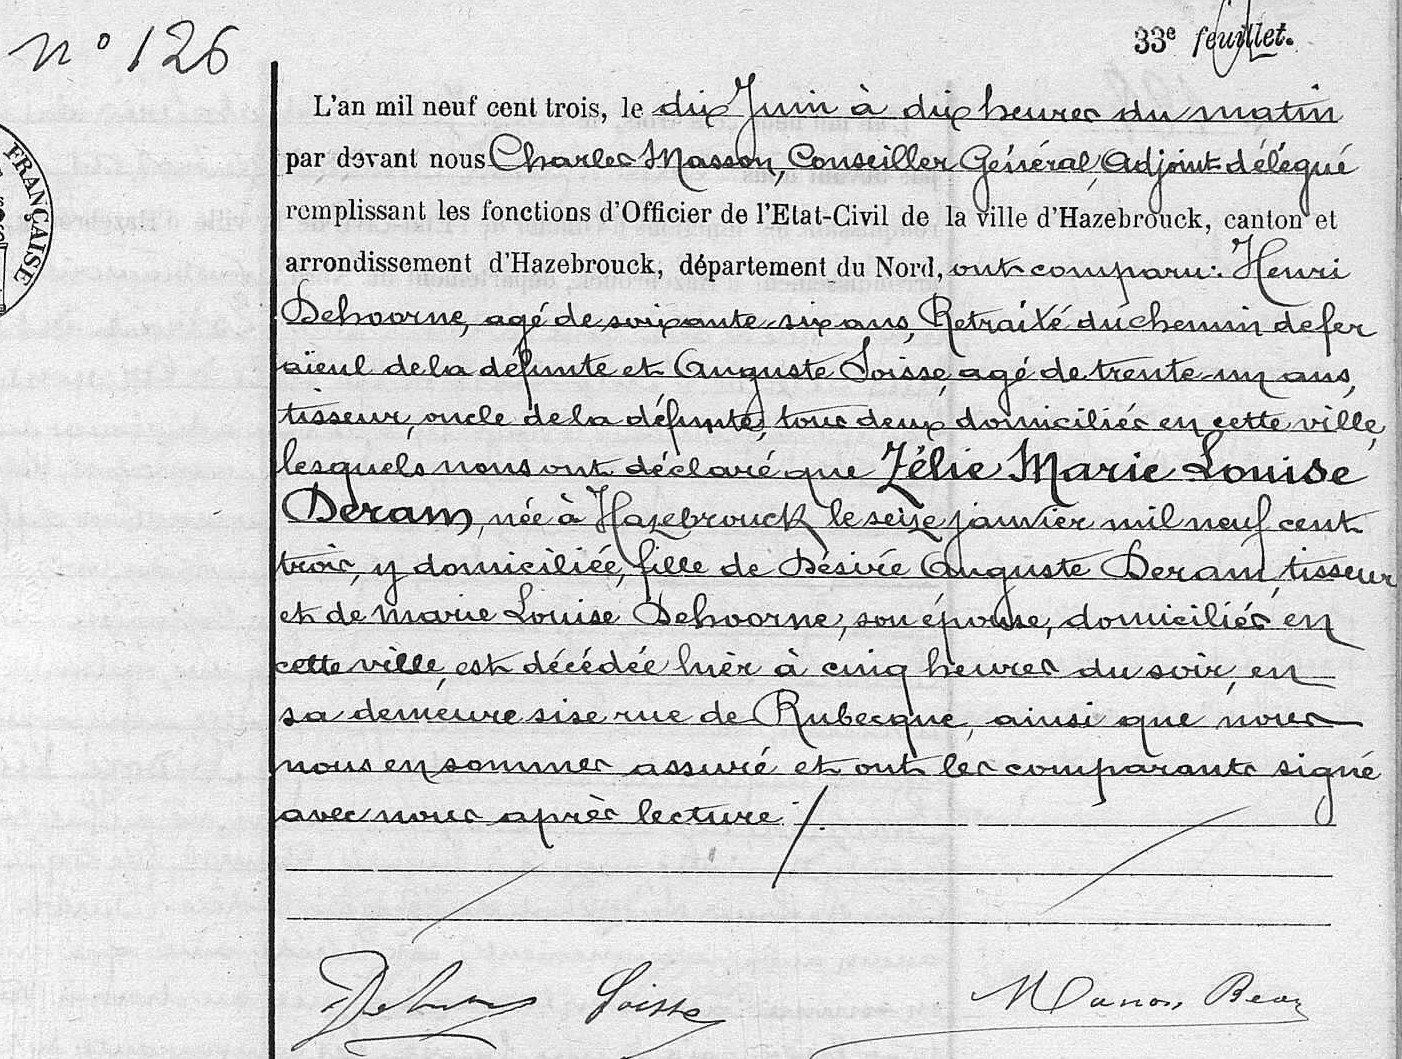 n° 126
33e feuillet.
FRANÇAISE
L'an mil neuf cent trois, le dix Juin à dix heures du matin
par devant nous Charles Masson, Conseiller Général, Adjoint délégué
remplissant les fonctions d'Officier de l'Etat-Civil de la ville d'Hazebrouck, canton et
arrondissement d'Hazebrouck, département du Nord, ont comparu: Henri
Dehoorne, agé de soixante six ans, Retraité du chemin de fer
aïeul de la défunte et Auguste Soisse, agé de trente un ans,
tisseur, oncle de la défunte, tous deux domiciliés en cette ville,
lesquels nous ont déclaré que Zélie Marie Louise
Deram, née à Hazebrouck le seize janvier mil neuf cent
trois, y domiciliée, fille de Désiré Auguste Deram, tisseur
et de Marie Louise Dehoorne, son épouse, domiciliés en
cette ville, est décédée hièr à cinq heures du soir, en
sa demeure sise rue de Rubecque, ainsi que nous
nous en sommes assuré et ont les comparants signé
avec nous après lecture ./.
Soisse
Masson